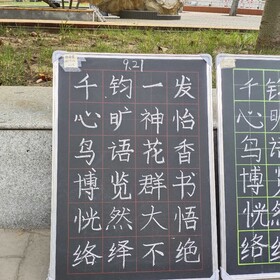 9.21
千钧一发
心旷神怡
鸟语花香
博览群书
恍然大悟
络绎不绝
千
心
鸟
博
恍
络